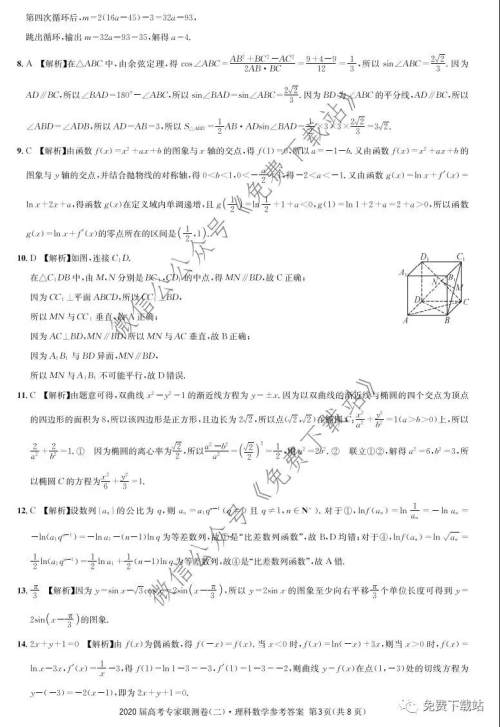 第四次循环后,m=2(16a-45)-3=32a-93,
跳出循环,输出 m=32a-93=35,解得 a=4.
8. A 【解析】在△ABC 中,由余弦定理,得 cos∠ABC=(AB²+BC²-AC²)/(2AB·BC)=(9+4-9)/12=1/3,所以 sin∠ABC=2√2/3. 因为
AD∥BC,所以∠BAD=180°-∠ABC,所以 sin∠BAD=sin∠ABC=2√2/3. 因为 BD 为∠ABC 的平分线,AD∥BC,所以
∠ABD=∠ADB,所以 AD=AB=3,所以 S△ABD=1/2 AB·ADsin∠BAD=1/2×3×3×2√2/3=3√2.
9. C 【解析】由函数 f(x)=x²+ax+b 的图象与 x 轴的交点,得 f(1)=0,所以 a=-1-b. 又由函数 f(x)=x²+ax+b 的
图象与 y 轴的交点,并结合抛物线的对称轴,得 0<b<1,0<-a/2<1,得 -2<a<-1. 又由函数 g(x)=ln x+f′(x)=
ln x+2x+a,得函数 g(x)在定义域内单调递增,且 g(1/2)=ln 1/2+1+a<0,g(1)=ln 1+2+a=2+a>0,所以函数
g(x)=ln x+f′(x)的零点所在的区间是(1/2,1).
10. D 【解析】如图,连接 C₁D,
在△C₁DB 中,由 M,N 分别是 BC₁,CD₁的中点,得 MN∥BD,故 C 正确;
因为 CC₁⊥平面 ABCD,所以 CC₁⊥BD,
所以 MN 与 CC₁ 垂直,故 A 正确;
因为 AC⊥BD,MN∥BD,所以 MN 与 AC 垂直,故 B 正确;
因为 A₁B₁ 与 BD 异面,MN∥BD,
所以 MN 与 A₁B₁ 不可能平行,故 D 错误.
D₁ C₁
A₁ B₁
N M
D C
A B
11. C 【解析】由题意可得,双曲线 x²-y²=1 的渐近线方程为 y=±x. 因为以双曲线的渐近线与椭圆的四个交点为顶点
的四边形的面积为 8,所以该四边形是正方形,且边长为 2√2,所以点(√2,√2)在椭圆 C:x²/a²+y²/b²=1(a>b>0)上,所以
2/a²+2/b²=1. ① 因为椭圆的离心率为√2/2,所以(a²-b²)/a²=(√2/2)²=1/2,则 a²=2b². ② 联立①②,解得 a²=6,b²=3,所
以椭圆 C 的方程为x²/6+y²/3=1.
12. C 【解析】设数列{aₙ}的公比为 q,则 aₙ=a₁qⁿ⁻¹(q>0 且 q≠1,n∈N*). 对于①,lnf(aₙ)=ln 1/aₙ=-ln aₙ=
-ln(a₁qⁿ⁻¹)=-ln a₁-(n-1)ln q 为等差数列,故①是“比差数列函数”,故 B,D 均错;对于④,lnf(aₙ)=ln √aₙ=
1/2 ln(a₁qⁿ⁻¹)=1/2 ln a₁+1/2(n-1)ln q 为等差数列,故④是“比差数列函数”,故 A 错.
13. π/3 【解析】因为 y=sin x-√3cos x=2sin(x-π/3),所以 y=2sin x 的图象至少向右平移π/3个单位长度可得到 y=
2sin(x-π/3)的图象.
14. 2x+y+1=0 【解析】由 f(x)为偶函数,得 f(-x)=f(x). 当 x<0 时,f(x)=ln(-x)+3x,则当 x>0 时,f(x)=
ln x-3x,f′(x)=1/x-3,得 f(1)=ln 1-3=-3,f′(1)=1-3=-2,则曲线 y=f(x)在点(1,-3)处的切线方程为
y-(-3)=-2(x-1),即为 2x+y+1=0.
2020 届高考专家联测卷(二)·理科数学参考答案 第3页(共 8 页)
微信公众号《免费下载站》
微信公众号《免费下载站》
免费下载站